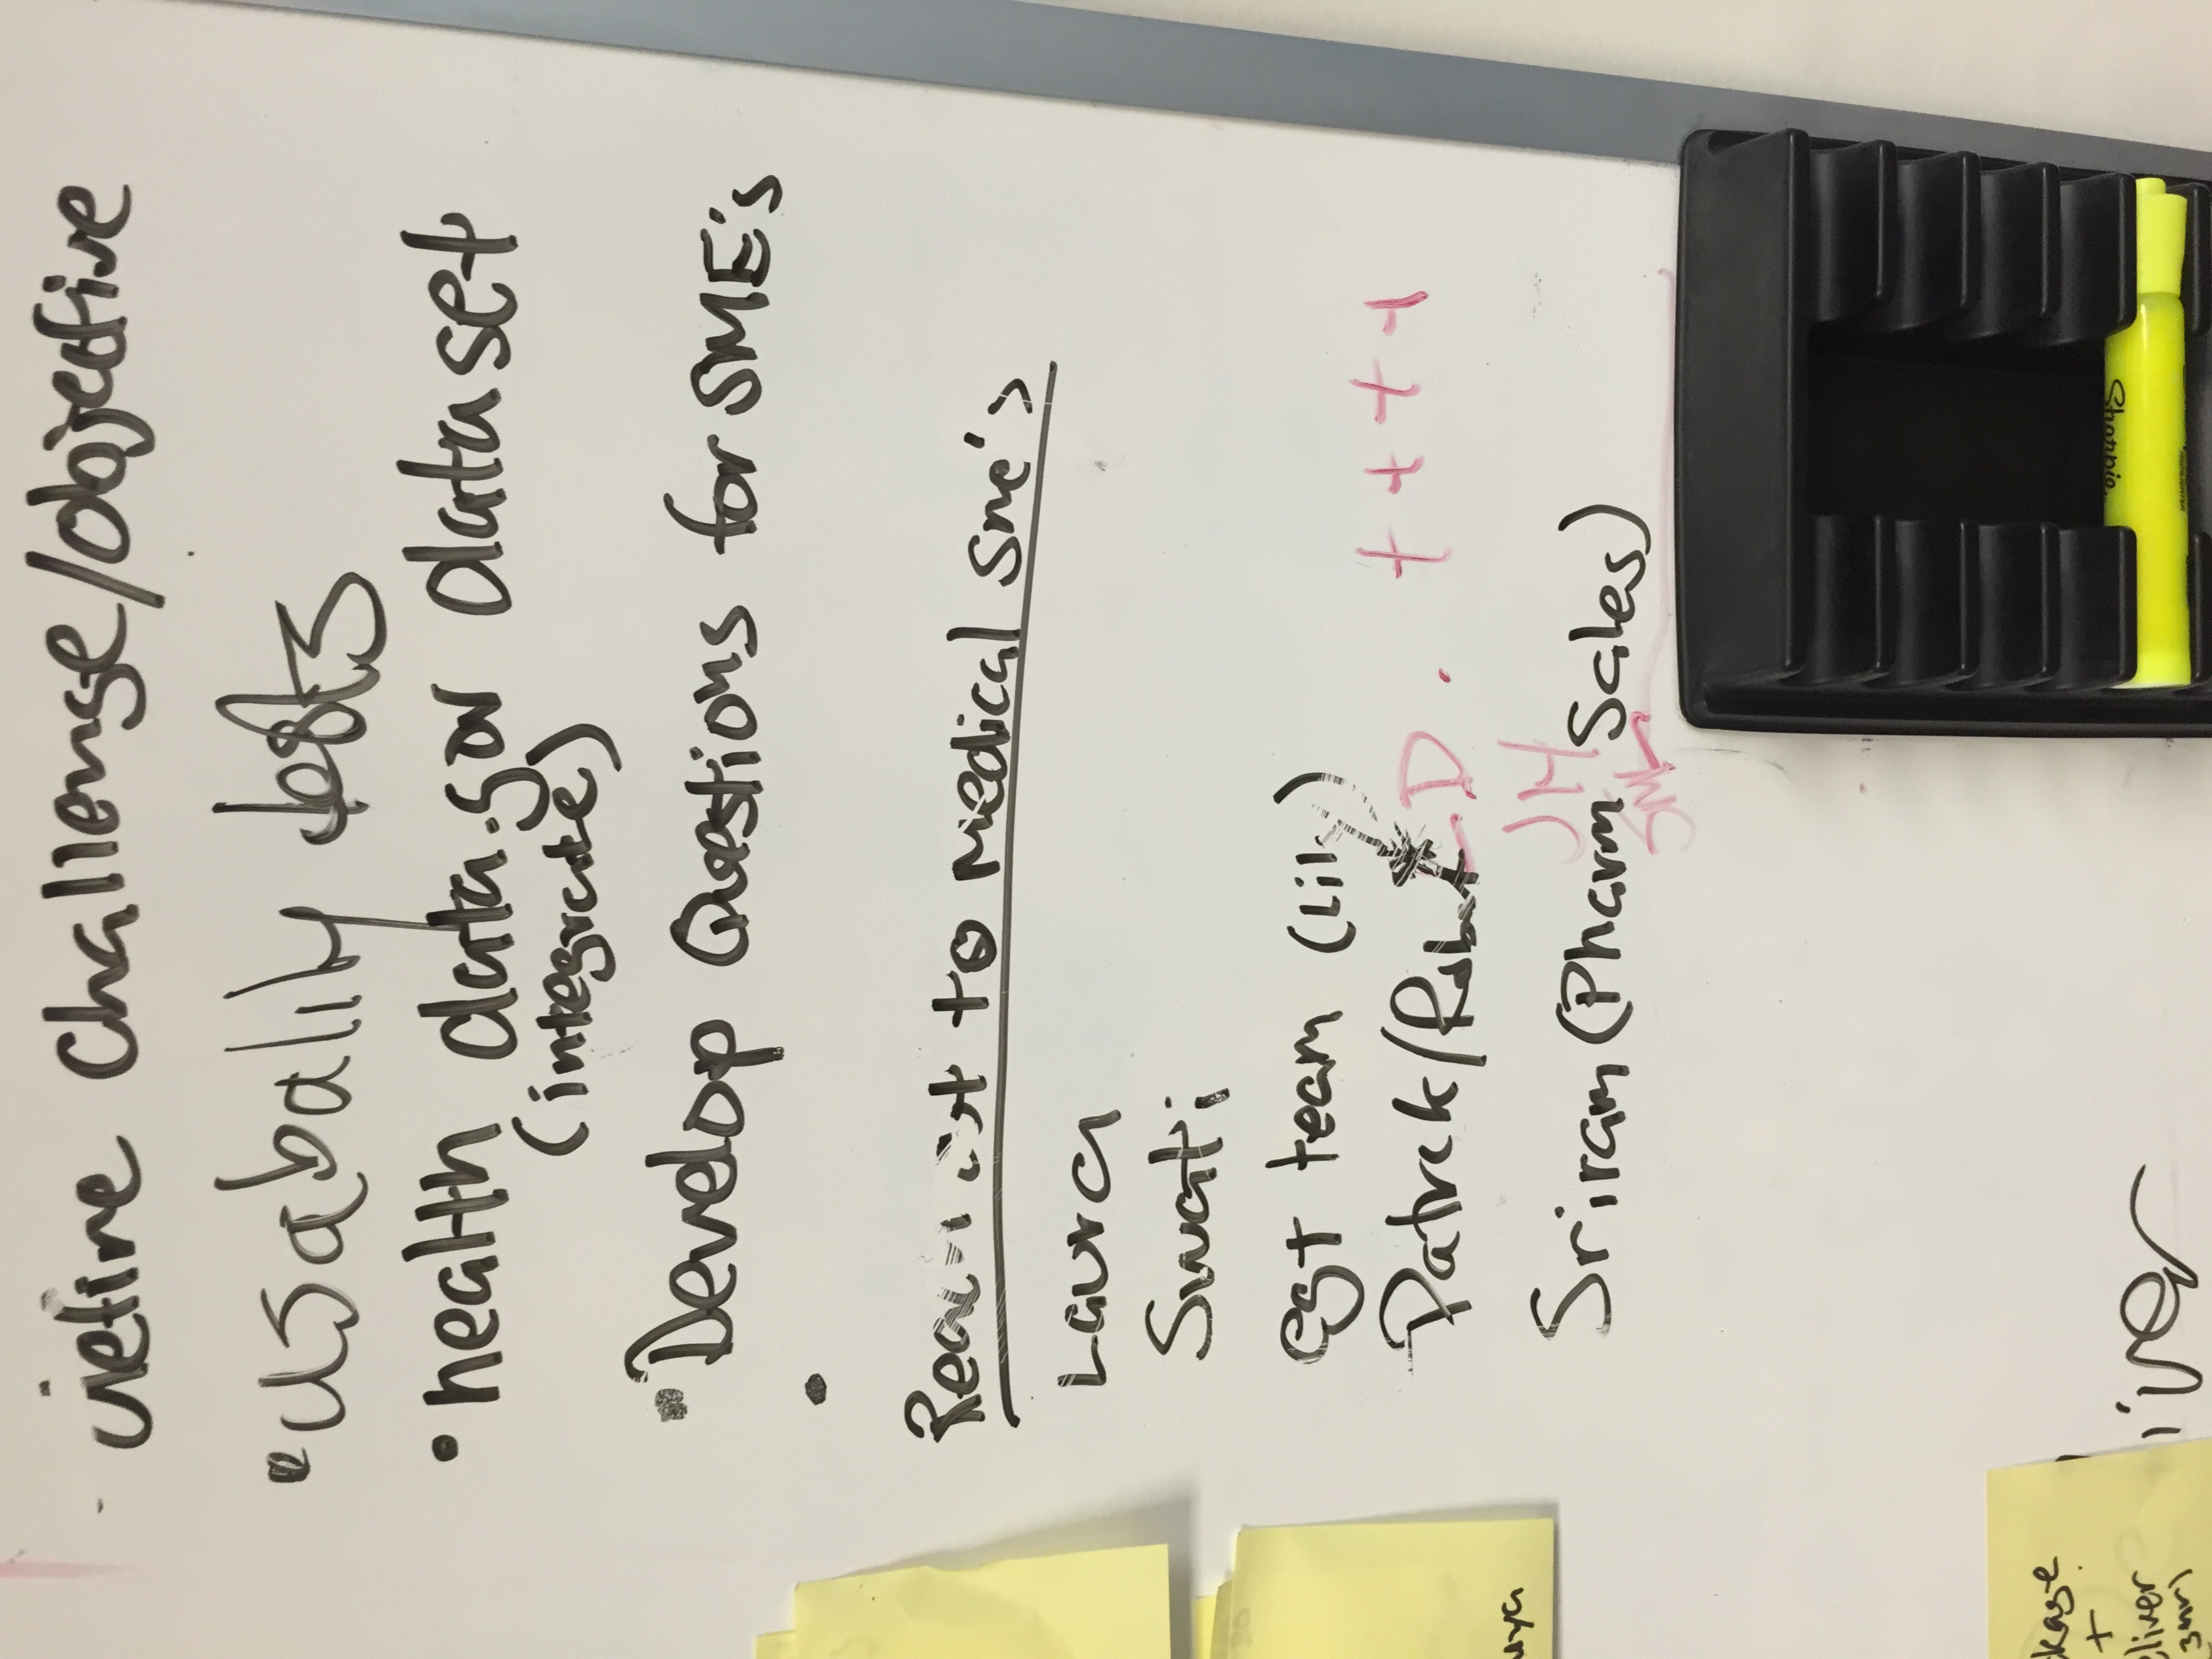 - define challenge/objective
• usabality tests
• health data.gov dataset
(integrate)
• Develop Questions for SME's
•
Reach out to Medical sme's
Laura
Swati
egt team (Lili)
Patrick/Robert
D. ++++
JH
Sriram (Pharm Sales)
SML
ckage
+
eliver
(3hr)
iver
Sharpie